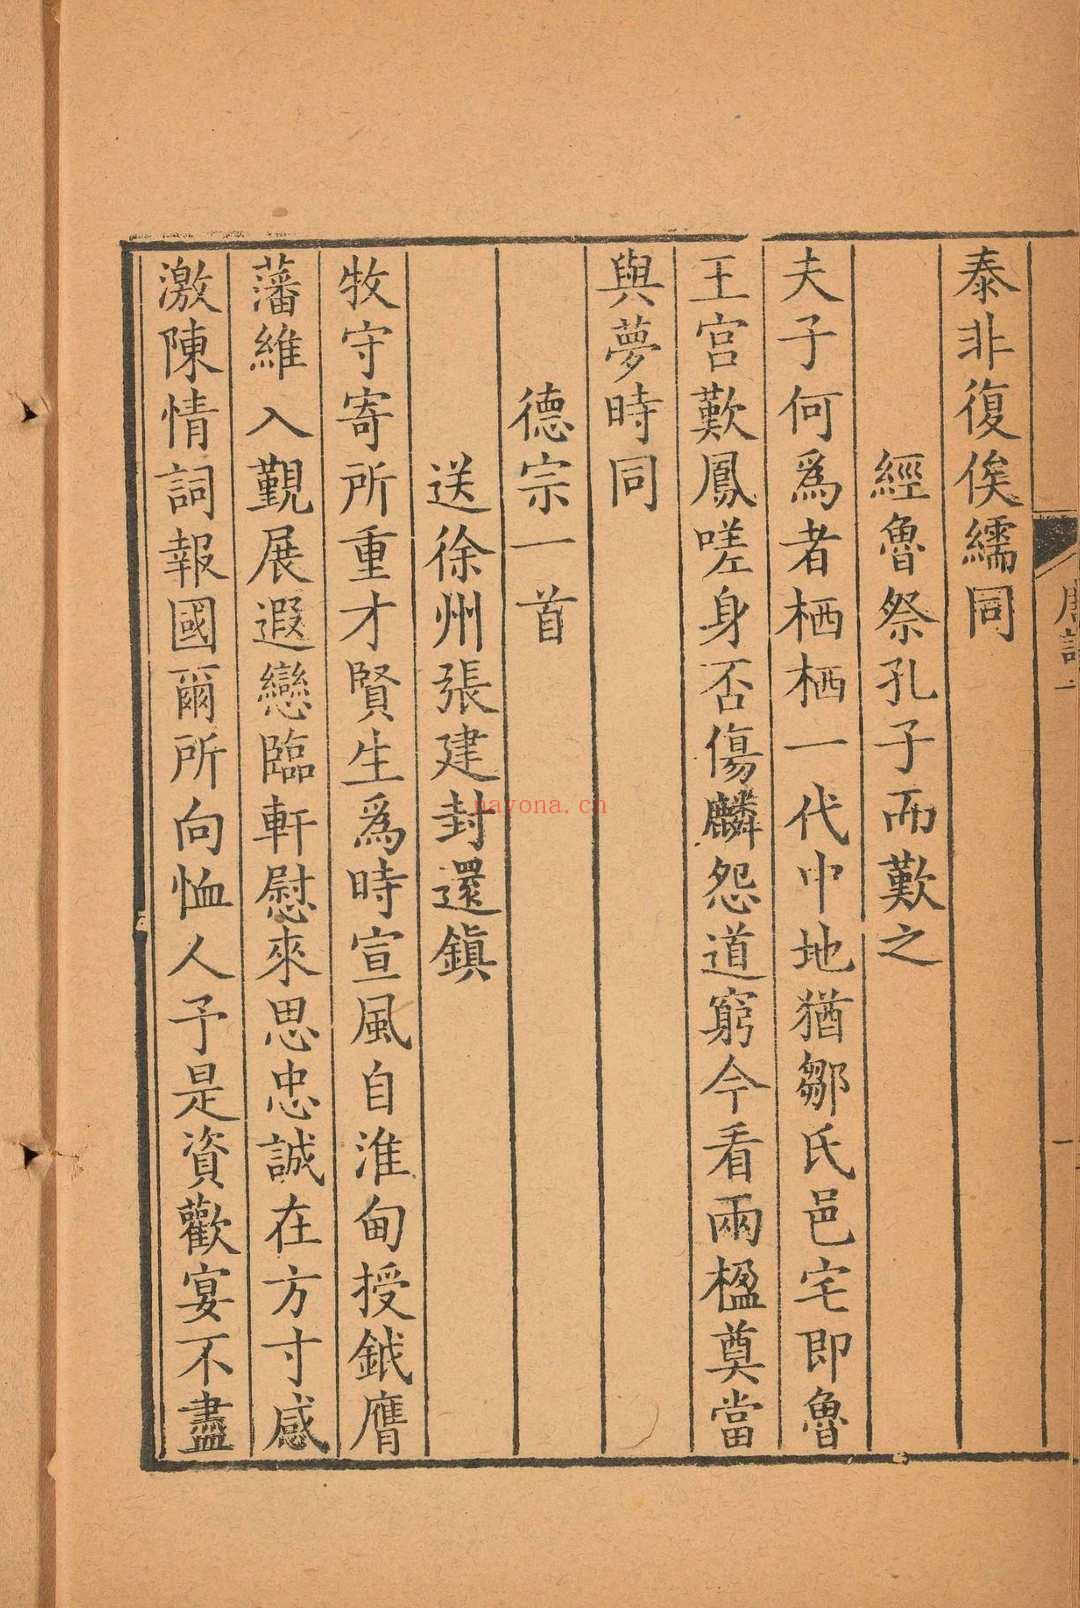 泰非復俟繻同
經魯祭孔子而歎之
夫子何爲者栖栖一代中地猶鄒氏邑宅即魯
王宮歎鳳嗟身否傷麟怨道窮今看兩楹奠當
與夢時同
德宗一首
送徐州張建封還鎮
牧守寄所重才賢生爲時宣風自淮甸授鉞膺
藩維入覲展遐戀臨軒慰來思忠誠在方寸感
激陳情詞報國爾所向恤人予是資歡宴不盡
nayona.cn